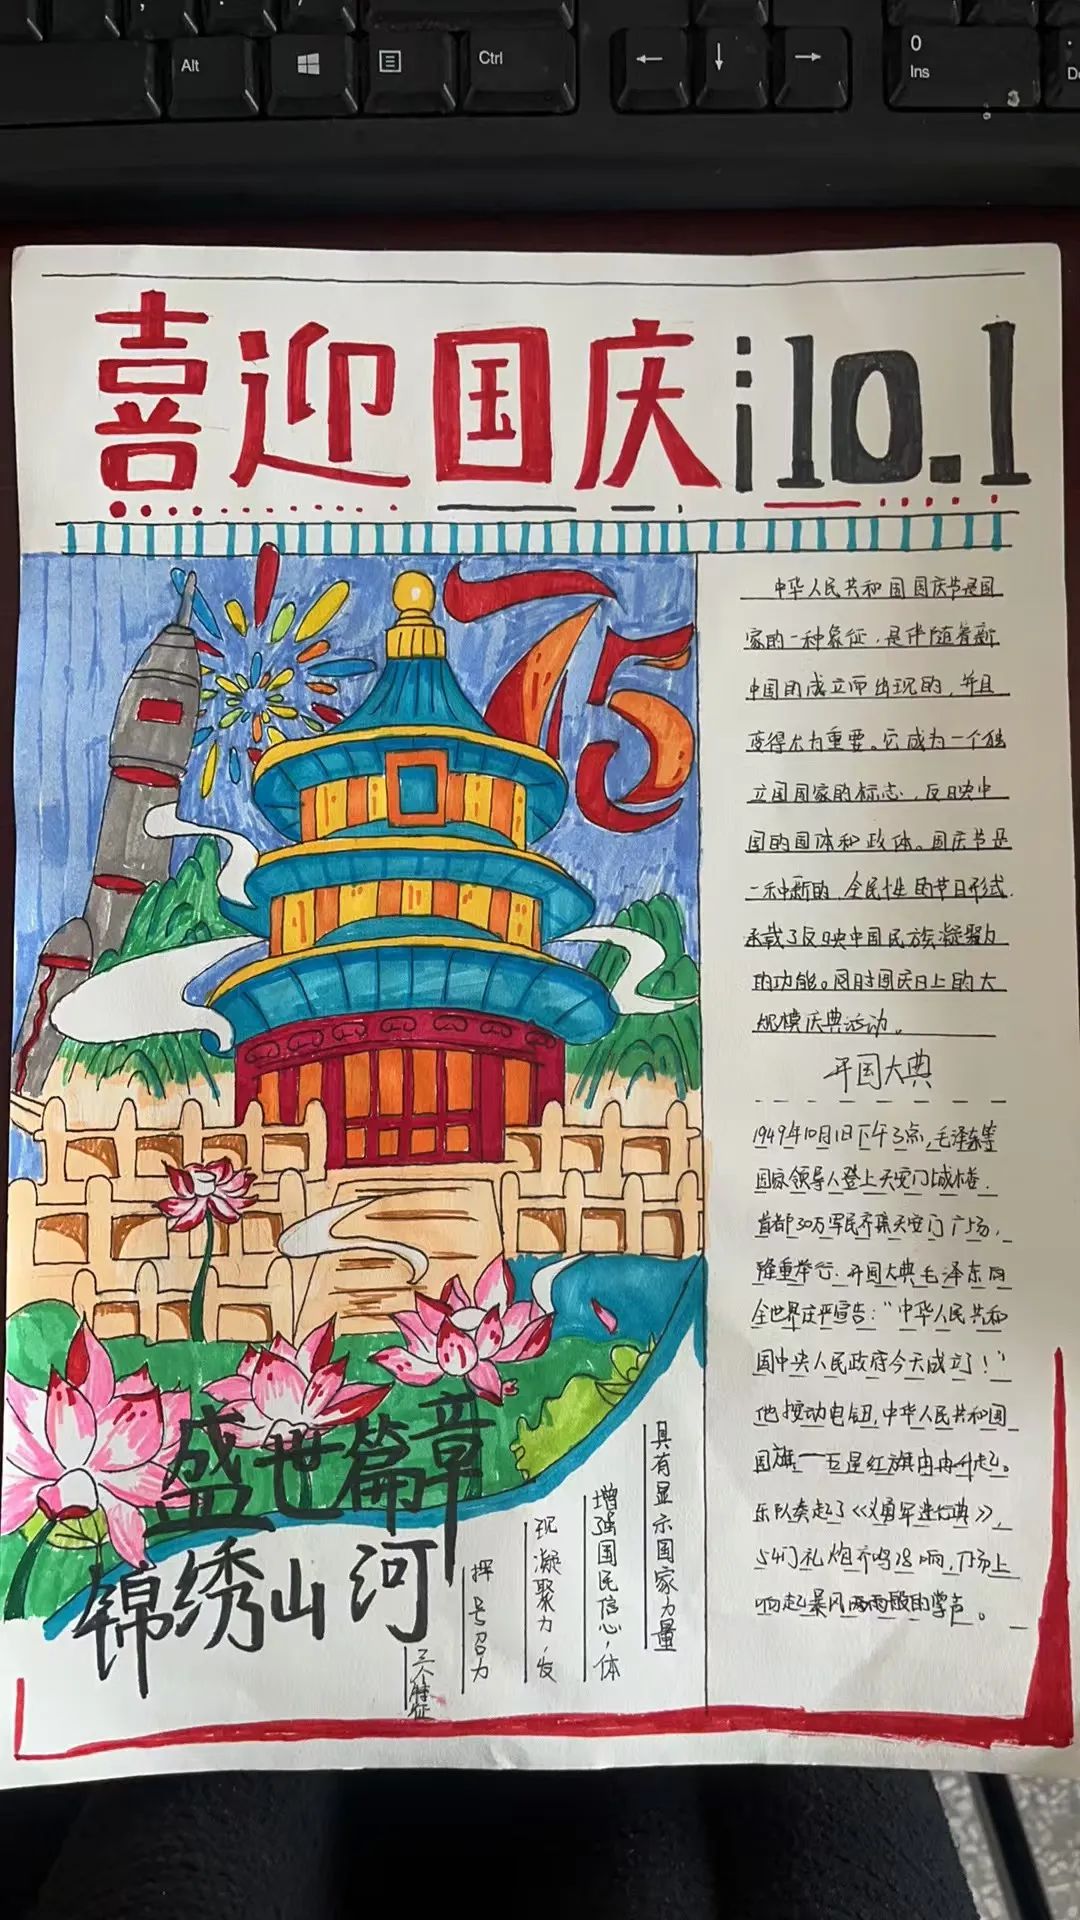 Alt
Ctrl
0
Ins
喜迎国庆 10.1
75
中华人民共和国国庆节是国
家的一种象征，是伴随着新
中国的成立而出现的，并且
变得尤为重要。它成为一个独
立国国家的标志，反映中
国的国体和政体。国庆节是
一种新的，全民性的节日形式，
承载了反映中国民族凝聚力
的功能。同时国庆日上的大
规模庆典活动。
开国大典
1949年10月1日下午3点，毛泽东等
国家领导人登上天安门城楼，
首都30万军民齐聚天安门广场，
隆重举行开国大典毛泽东向
全世界庄严宣告：“中华人民共和
国中央人民政府今天成立了！”
他按动电钮，中华人民共和国
国旗一五星红旗冉冉升起。
乐队奏起了《义勇军进行典》，
54门礼炮齐鸣28响，广场上
响起暴风雨雨般的掌声。
盛世篇章
锦绣山河
具有显示国家力量
增强国民信心，体
现凝聚力，发
挥号召力
三个特征